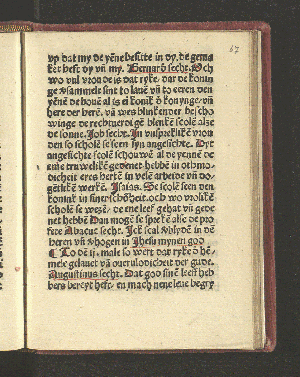 67
vp dat my de yēne besitte in dy, de gema
ket heft dy vñ my. Bernard9 secht. Och
wo vul vron de is dat ryke, dar de konin
ge vsammelt sint to lauē vñ to eeren den
yēnē de bouē al is ei konik ō konynge, vñ
here der herē. vñ wes blinkender bescho
winge de rechtuerdigē blenkē scolē alse
de sonne. Job secht. In vnsprekliker vrou
den so scholē se seen syn angesichte. Dyt
angesichte scolē schouwen al de yenne de
eme truweliken gedenet hebbē in othmo
dicheit eres hertē in vele arbeide vñ do-
getlikē werkē. Isaias. Se scolē seen den
konink in siner schōheit. och wo vrolikē
scholē se wesē, de ene leef gehat vñ gede
net hebbē. Dan mogē se spreke alse de pro
fete Abacuc secht. Ick scal vrolydē in dē
heren vñ vhogen in Jhesu mynen god
To dē ij. male so wert dar ryke ō hē-
mele gelauet vā ouerulodicheit der gude.
Augustinus secht. Dat god sinē leefheb
bers bereyt heft, en mach nene leue begry